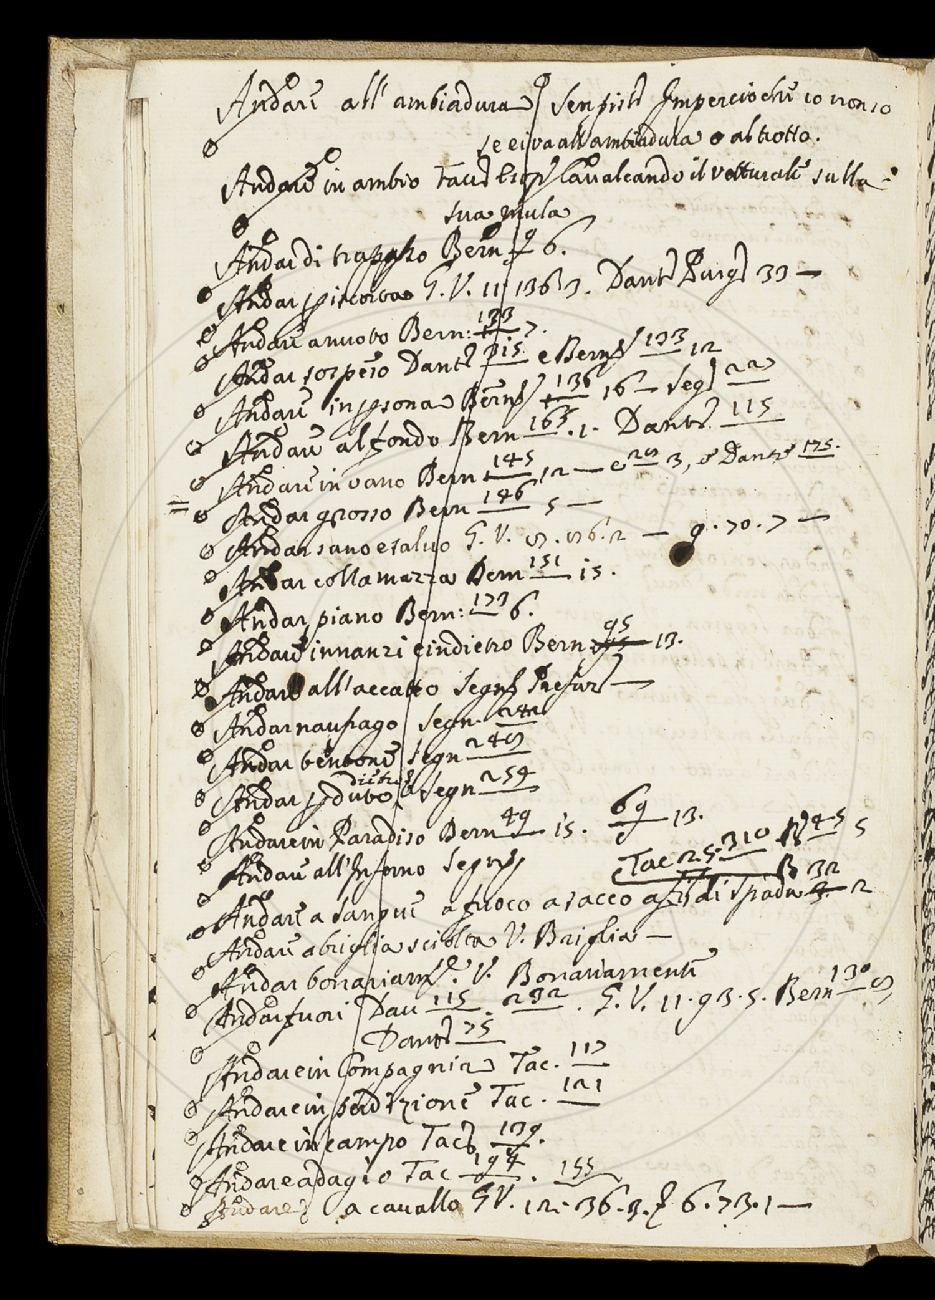 Andare all'ambiadura Imperciochè io non so
se ei va all'ambiadura o al trotto.
Andare in ambio Cavalcando il vetturale sulla
sua mula
Andar di trapasso Bern 6.
Andar G. V. 11. 136. 3. Dant. Purg. 33 —
Andare a nuoto Bern: 133 7.
Andar sospeso Dant. e Bern 133 12
Andare in persona Bern 136 16 — Segn 22
Andare al fondo Bern 163. 1. Dant. 115
Andare in vano Bern 145 12 — e 3, e Dante 175.
Andar grosso Bern 146 5 —
Andar sano e salvo G. V. — 9. 70. 7 —
Andar colla mazza Bern 151 15.
Andar piano Bern: 173 6.
Andare innanzi e indietro Bern 95 13.
Andare all'accatto Segn Prefaz —
Andar naufrago Segn.
Andar tentone Segn 249
Andar perduto dietro Segn 254
Andare in Paradiso Bern 49 15. 69 13.
Andare all'Inferno Segn
Tac 25. 310 B 45 5
Andare a sangue a fuoco a sacco a fil di spada B 32 2
Andare a briglia sciolta V. Briglia —
Andar bonariam. V. Bonariamente
Andar fuori Dav 115. 232. G. V. 11. 93. 5. Bern 130
Dant 75
Andare in Compagnia Tac. 117
Andare in perdizione Tac. 121
Andare in campo Tac 139.
Andare adagio Tac 194. 155
Andare a cavallo G. V. 12. 36. 3. E 6. 73. 1 —